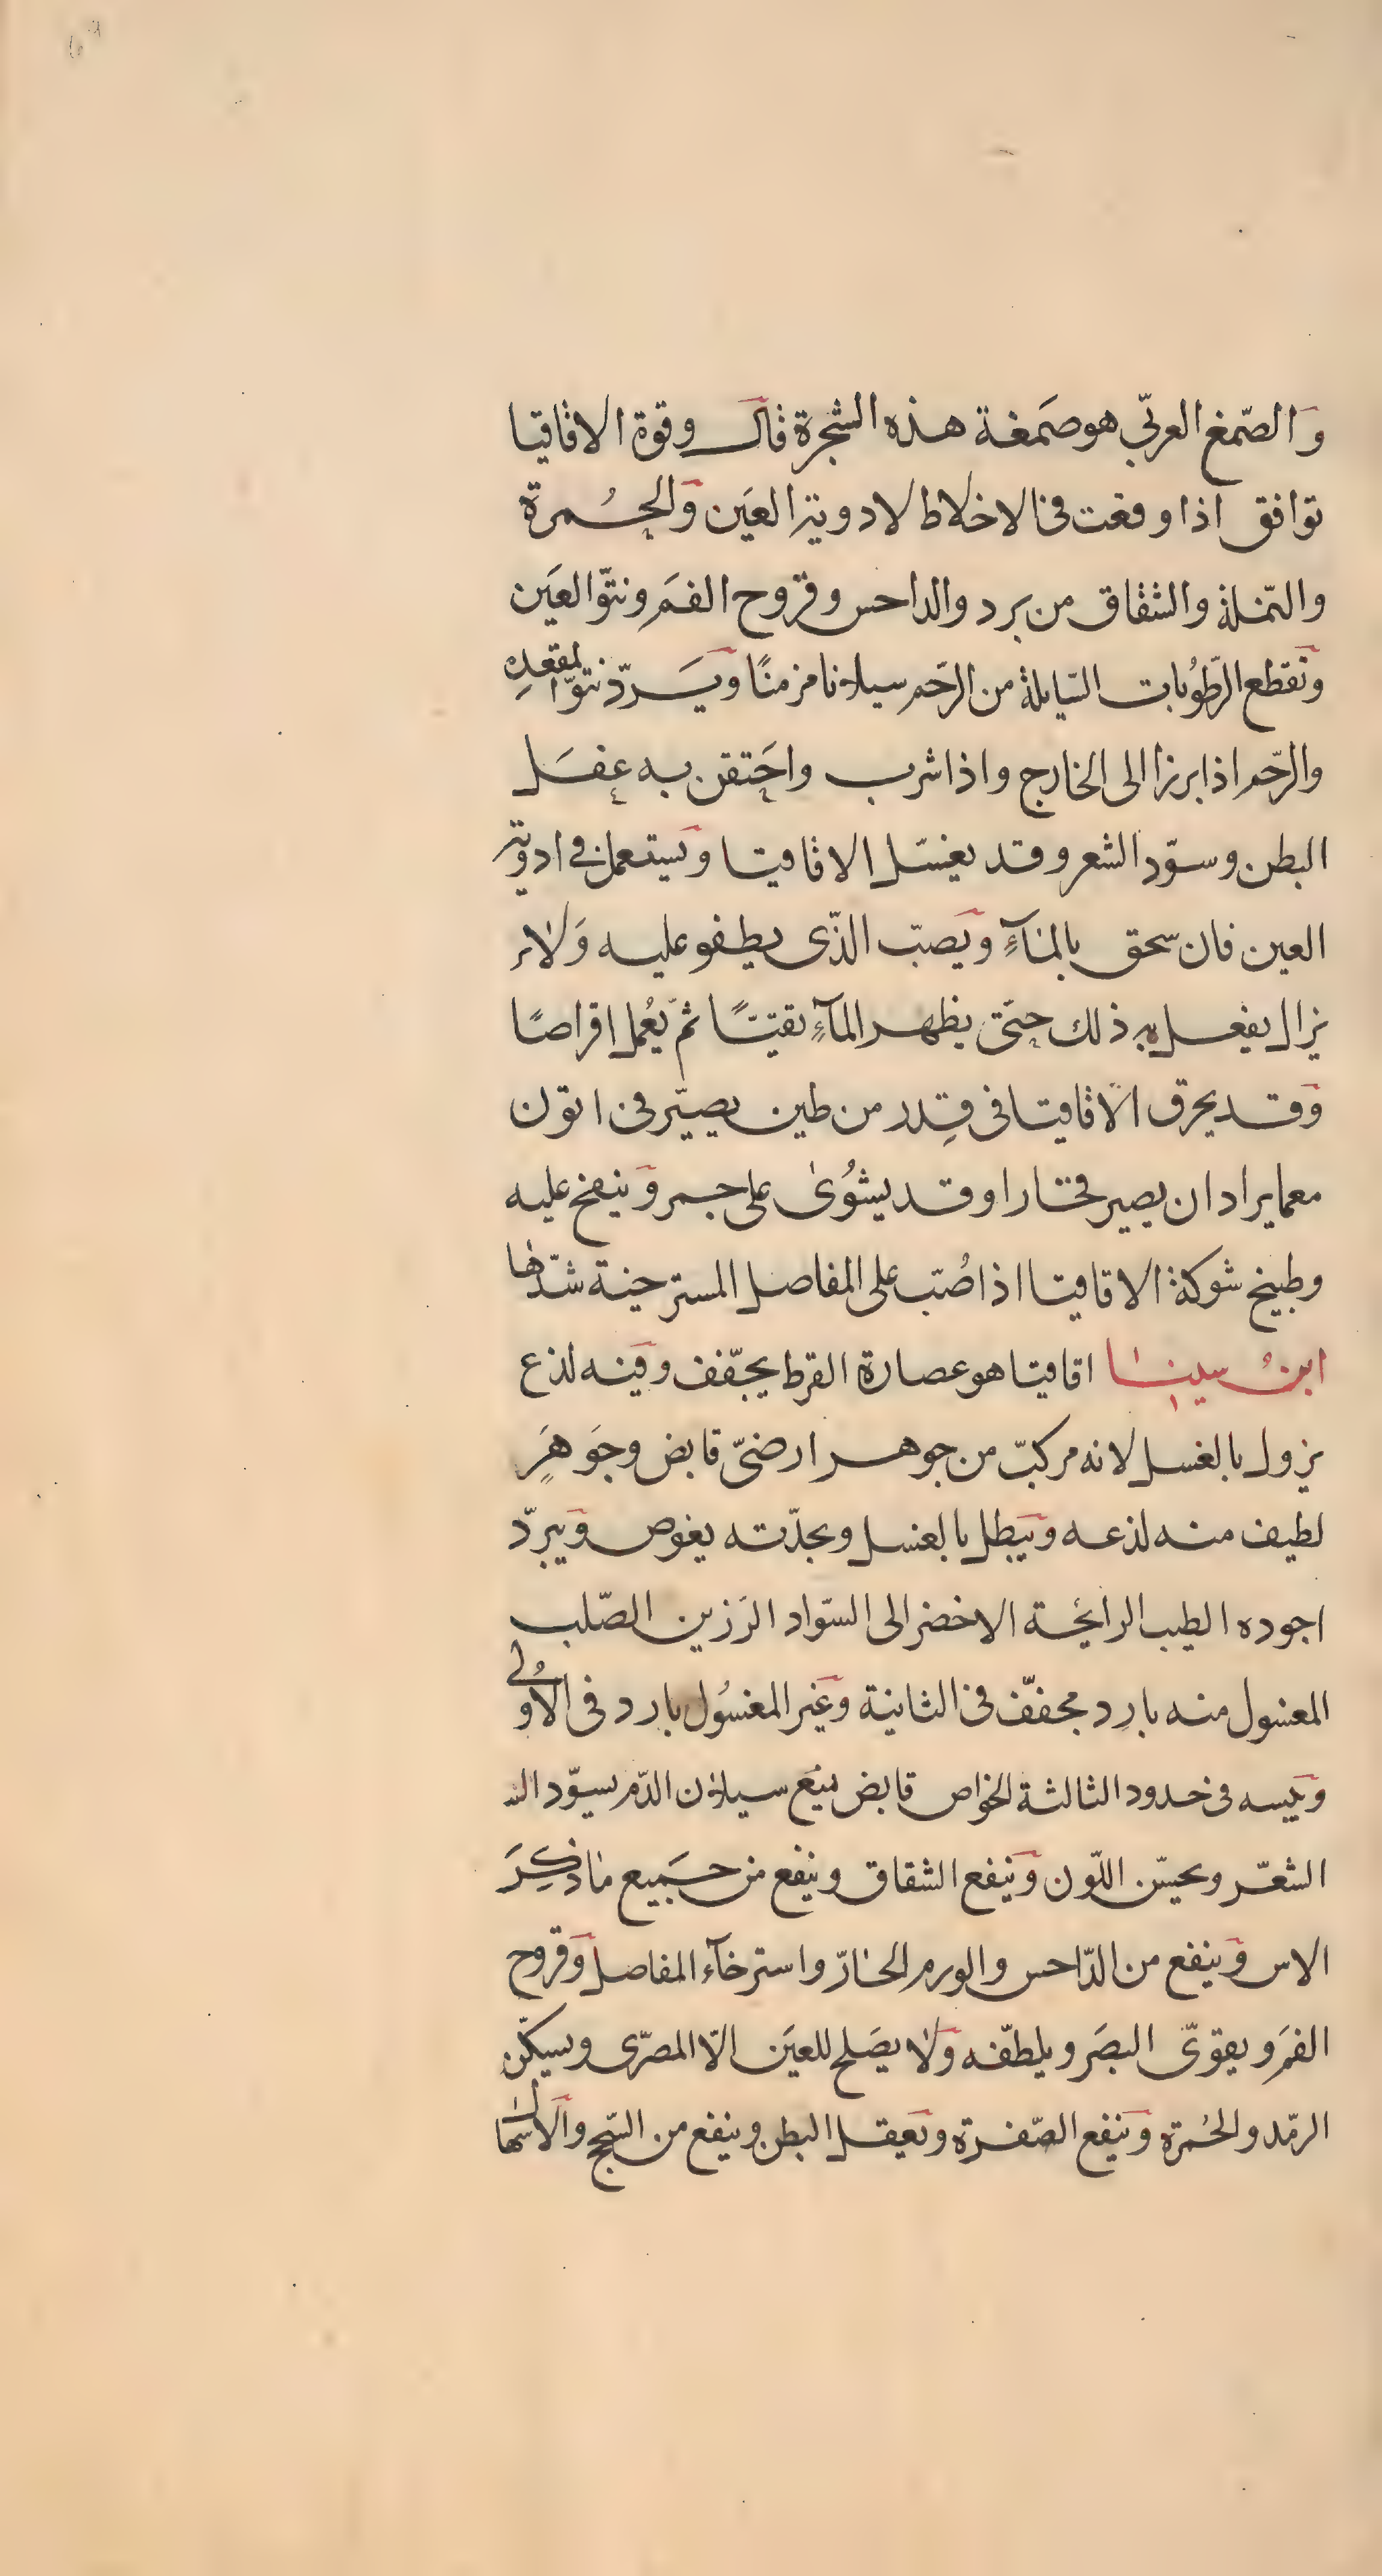 وَالصّمغ العربّي هو صَمغة هذه الشجرة قال وقوة الاقاقيا
توافق اذا وقعت في الاخلاط لادوية العَين وَالحُمرة
والنّملة والشقاق من برد والداحس وقروح الفَم ونتوّ العَين
وَتقطع الرّطوُبات السّايلة من الرّحَم سيلانا مزمنًا وَيَردّ نتوّ المقعدِه
والرّحم اذا برزا الى الخارج واذا شرب واحَتقن به عقَل
البطن وسوّد الشعر وقد يغسَل الاقاقيا وَيستعمل في ادوية
العين فان سحق بالمآءِ وَيَصبّ الذّى يطفو عليه وَلا
يزال يفعل به ذلك حتَى يظهر المآءِ نقيًّا ثمّ يعُمل اقراصًا
وَقد يحرق الاقاقيا في قِدر من طين يصيّر في اتون
مع ما يراد ان يصير فخارا وقد يشوُى على جمر وَينفخ عليه
وطبيخ شوكة الاقاقيا اذا صُبّ على المفاصل المسترخية شدّها
ابن سينا اقاقيا هو عصارة القرط يجفّف وَفيه لذع
يزول بالغسل لانه مركبّ من جوهر ارضىّ قابض وجَوهَرِ
لطيف منه لذعه وَيَبطل بالغسل وبحدّته يغوص وَيبردّ
اجوده الطيب الرايحة الاخضر الى السّواد الرَزين الصّلب
المغسول منه بارِد مجففّ في الثانية وَغير المغسُول بارد فى الاُولى
وَيَبسه في حدود الثالثة الخواص قابض يمنَع سيلان الدّم يسوّد الـ
الشعَر ويحسّن اللّون وَيَنفع الشقاق وينفع من جَميع ما ذكِرَ
الاس وَينفع من الدّاحس والورم الحارّ واسترخآء المفاصل وَقروح
الفمَ ويقوّى البصَر ويلطّفه وَلا يصَلح للعيَن الّا المصرّى ويسكّن
الرمّد والحُمرة وَيَنفع الصّفرة وَيَعقل البطن وينفع من السّحج وَالاسهال